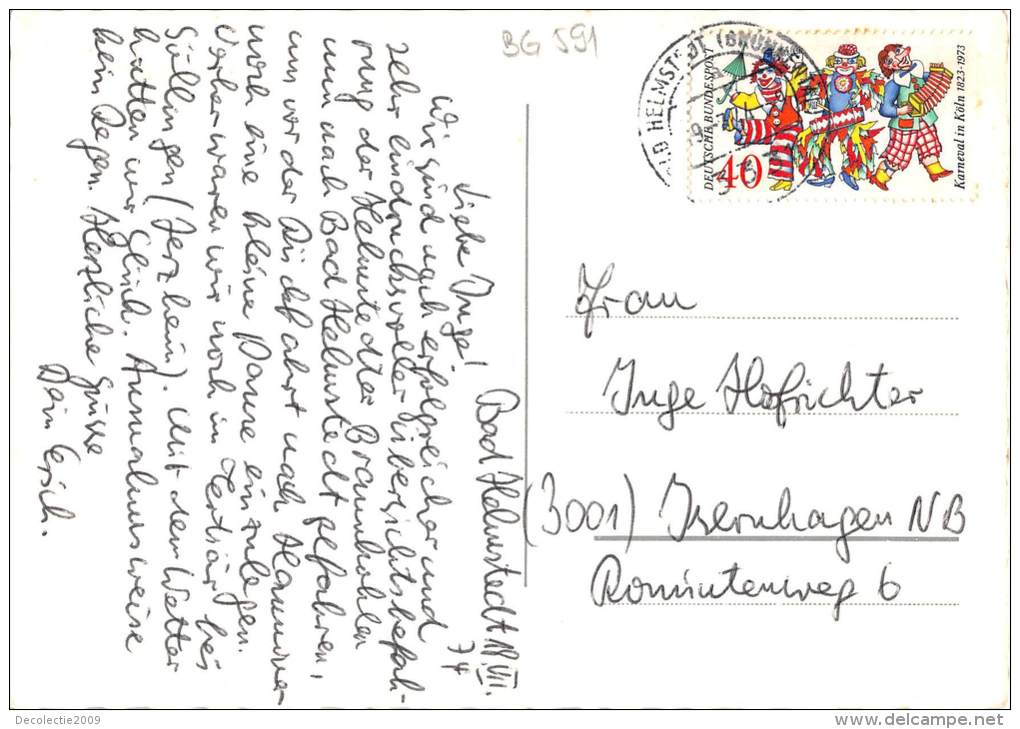 BG 591
BAD HELMSTEDT (BRUNNENTAL)
DEUTSCHE BUNDESPOST
40
Karneval in Köln 1823-1973
Bad Helmstedt 18.VII.
74
Liebe Inge!
Wir sind nach erfolgreicher und
sehr eindrucksvoller Übersichtsbefah-
rung der Helmstedter Braunkohlen
nun nach Bad Helmstedt gefahren,
um vor der Rückfahrt nach Hannover
noch eine kleine Pause einzulegen.
Vorher waren wir noch im Tertiär bei
Söllingen (Jerxheim). Mit dem Wetter
hatten wir Glück. Ausnahmsweise
kein Regen. Herzliche Grüsse
Dein Erich.
Frau
Inge Hofrichter
(3001) Isernhagen NB
Romintenweg 6
Decolectie2009
delcampe.net